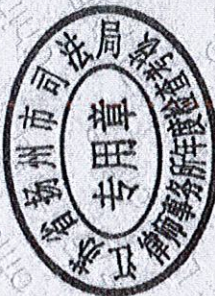 江苏省扬州市司法局
律师事务所年度检查考核
专用章